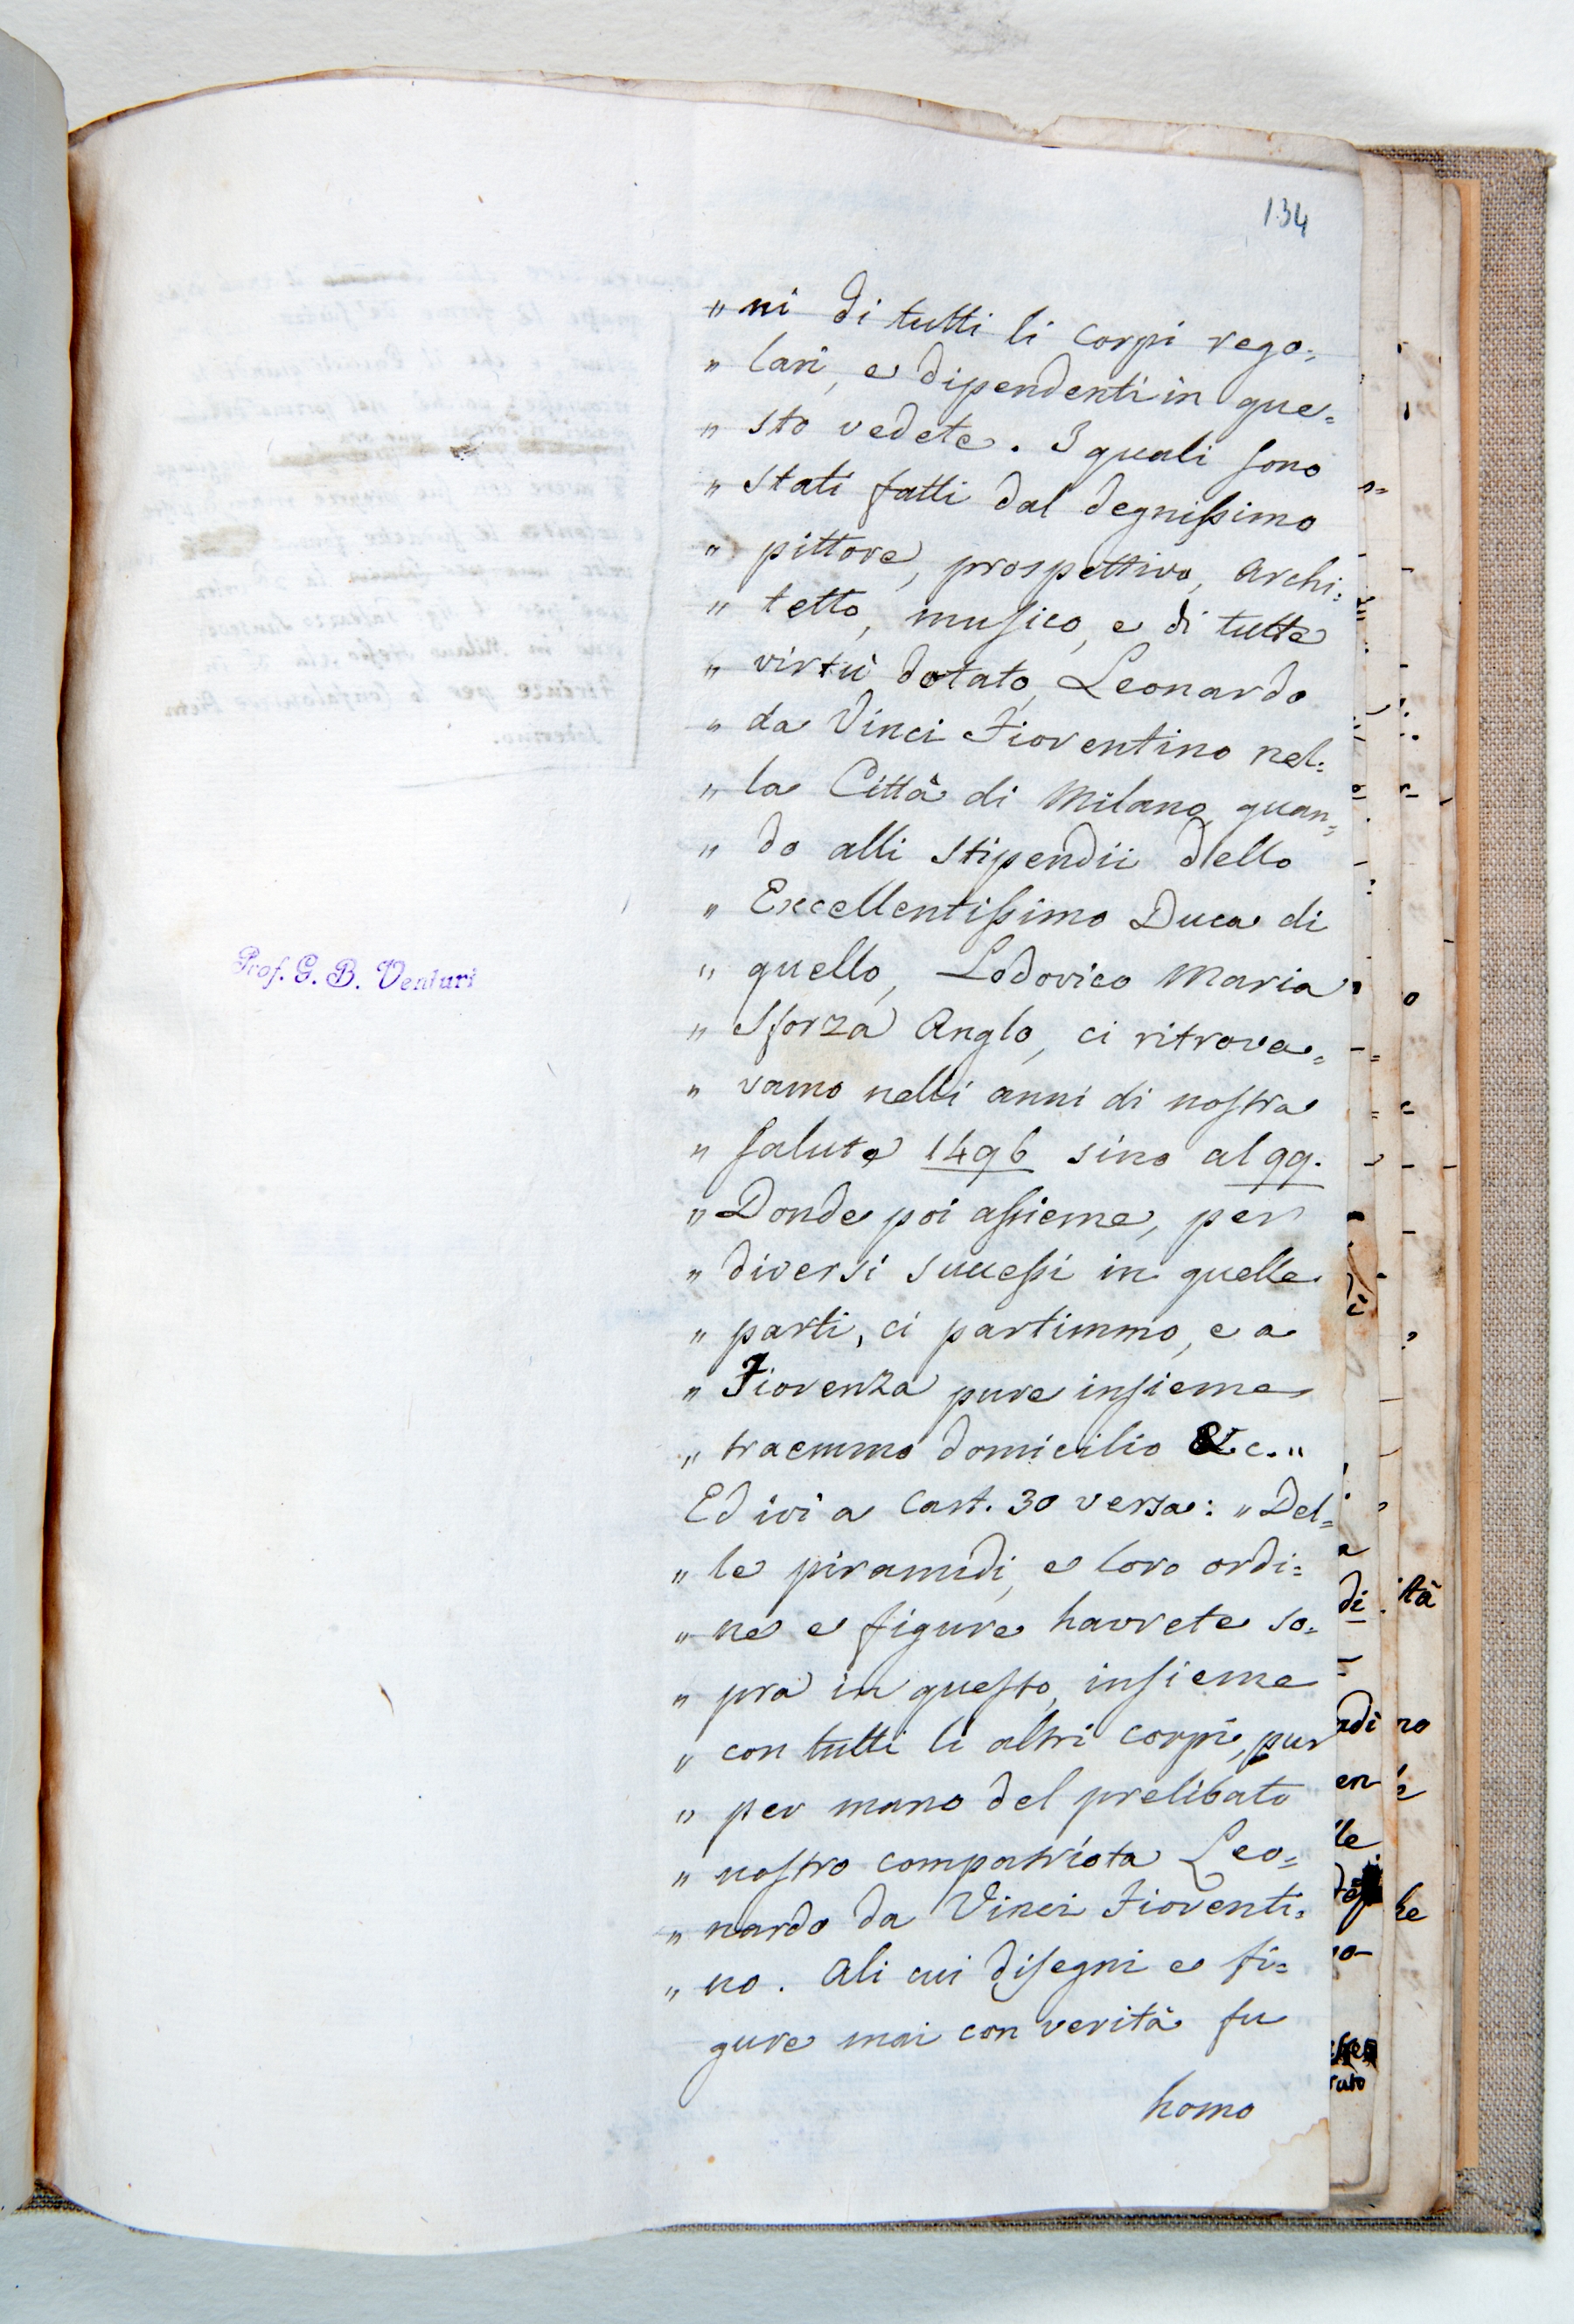 134
„ ni di tutti li corpi rego=
„ lari, e dipendenti in que=
„ sto vedete. I quali sono
„ stati fatti dal degnissimo
„ pittore, prospettivo, archi=
„ tetto, musico, e di tutte
„ virtù dotato, Leonardo
„ da Vinci Fiorentino nel=
„ la Città di Milano, quan=
„ do alli stipendii dello
„ Excellentissimo Duca di
„ quello, Lodovico Maria
„ Sforza Anglo, ci ritrova=
„ vamo nelli anni di nostra
„ salute 1496 sino al 99.
„ Donde poi assieme, per
„ diversi successi in quelle
„ parti, ci partimmo, e a
„ Fiorenza pure insieme
„ traemmo domicilio &c. „
Ed ivi a Cart. 30 versa: „ Del=
„ le piramidi, e loro ordi=
„ ne e figure havrete so=
„ pra in questo, insieme
„ con tutti li altri corpi, pur
„ per mano del prelibato
„ nostro compatriota Leo=
„ nardo da Vinci Fiorenti=
„ no. Ali cui disegni e fi=
gure mai con verità fu
homo
Prof. G. B. Venturi